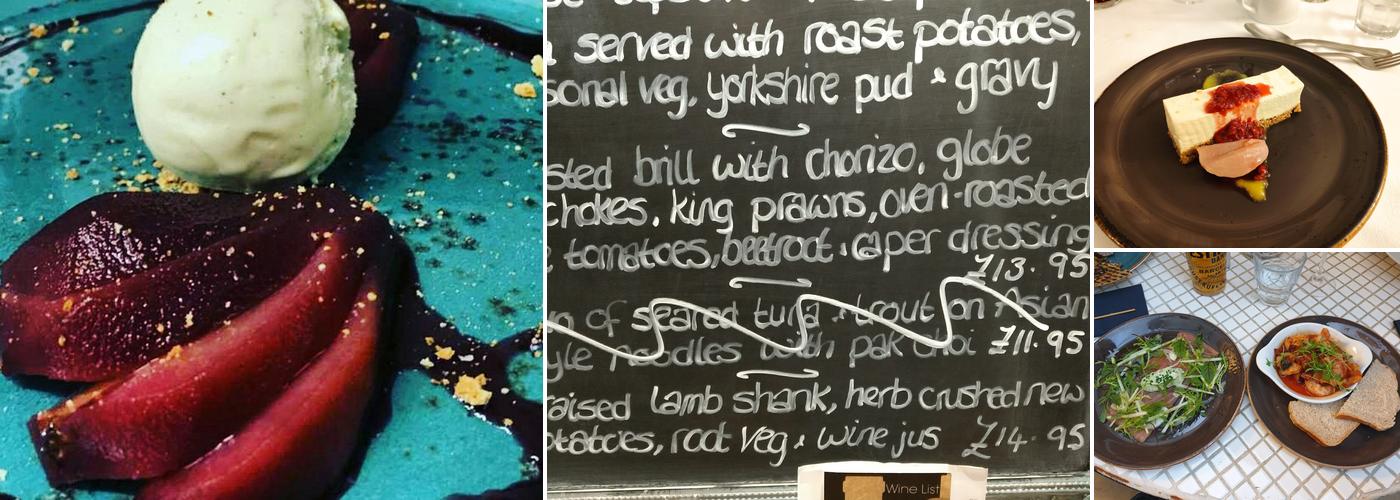 served with roast potatoes,
sonal veg, yorkshire pud & gravy
sted brill with chorizo, globe
chokes, king prawns, oven-roasted
tomatoes, beetroot & caper dressing
£13.95
of seared tuna & trout on Asian
yle noodles with pak choi £11.95
raised lamb shank, herb crushed new
otatoes, root veg & wine jus £14.95
Wine List